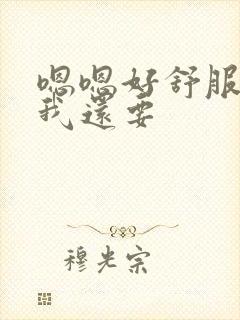 嗯嗯好舒服
我還要
穆光宗